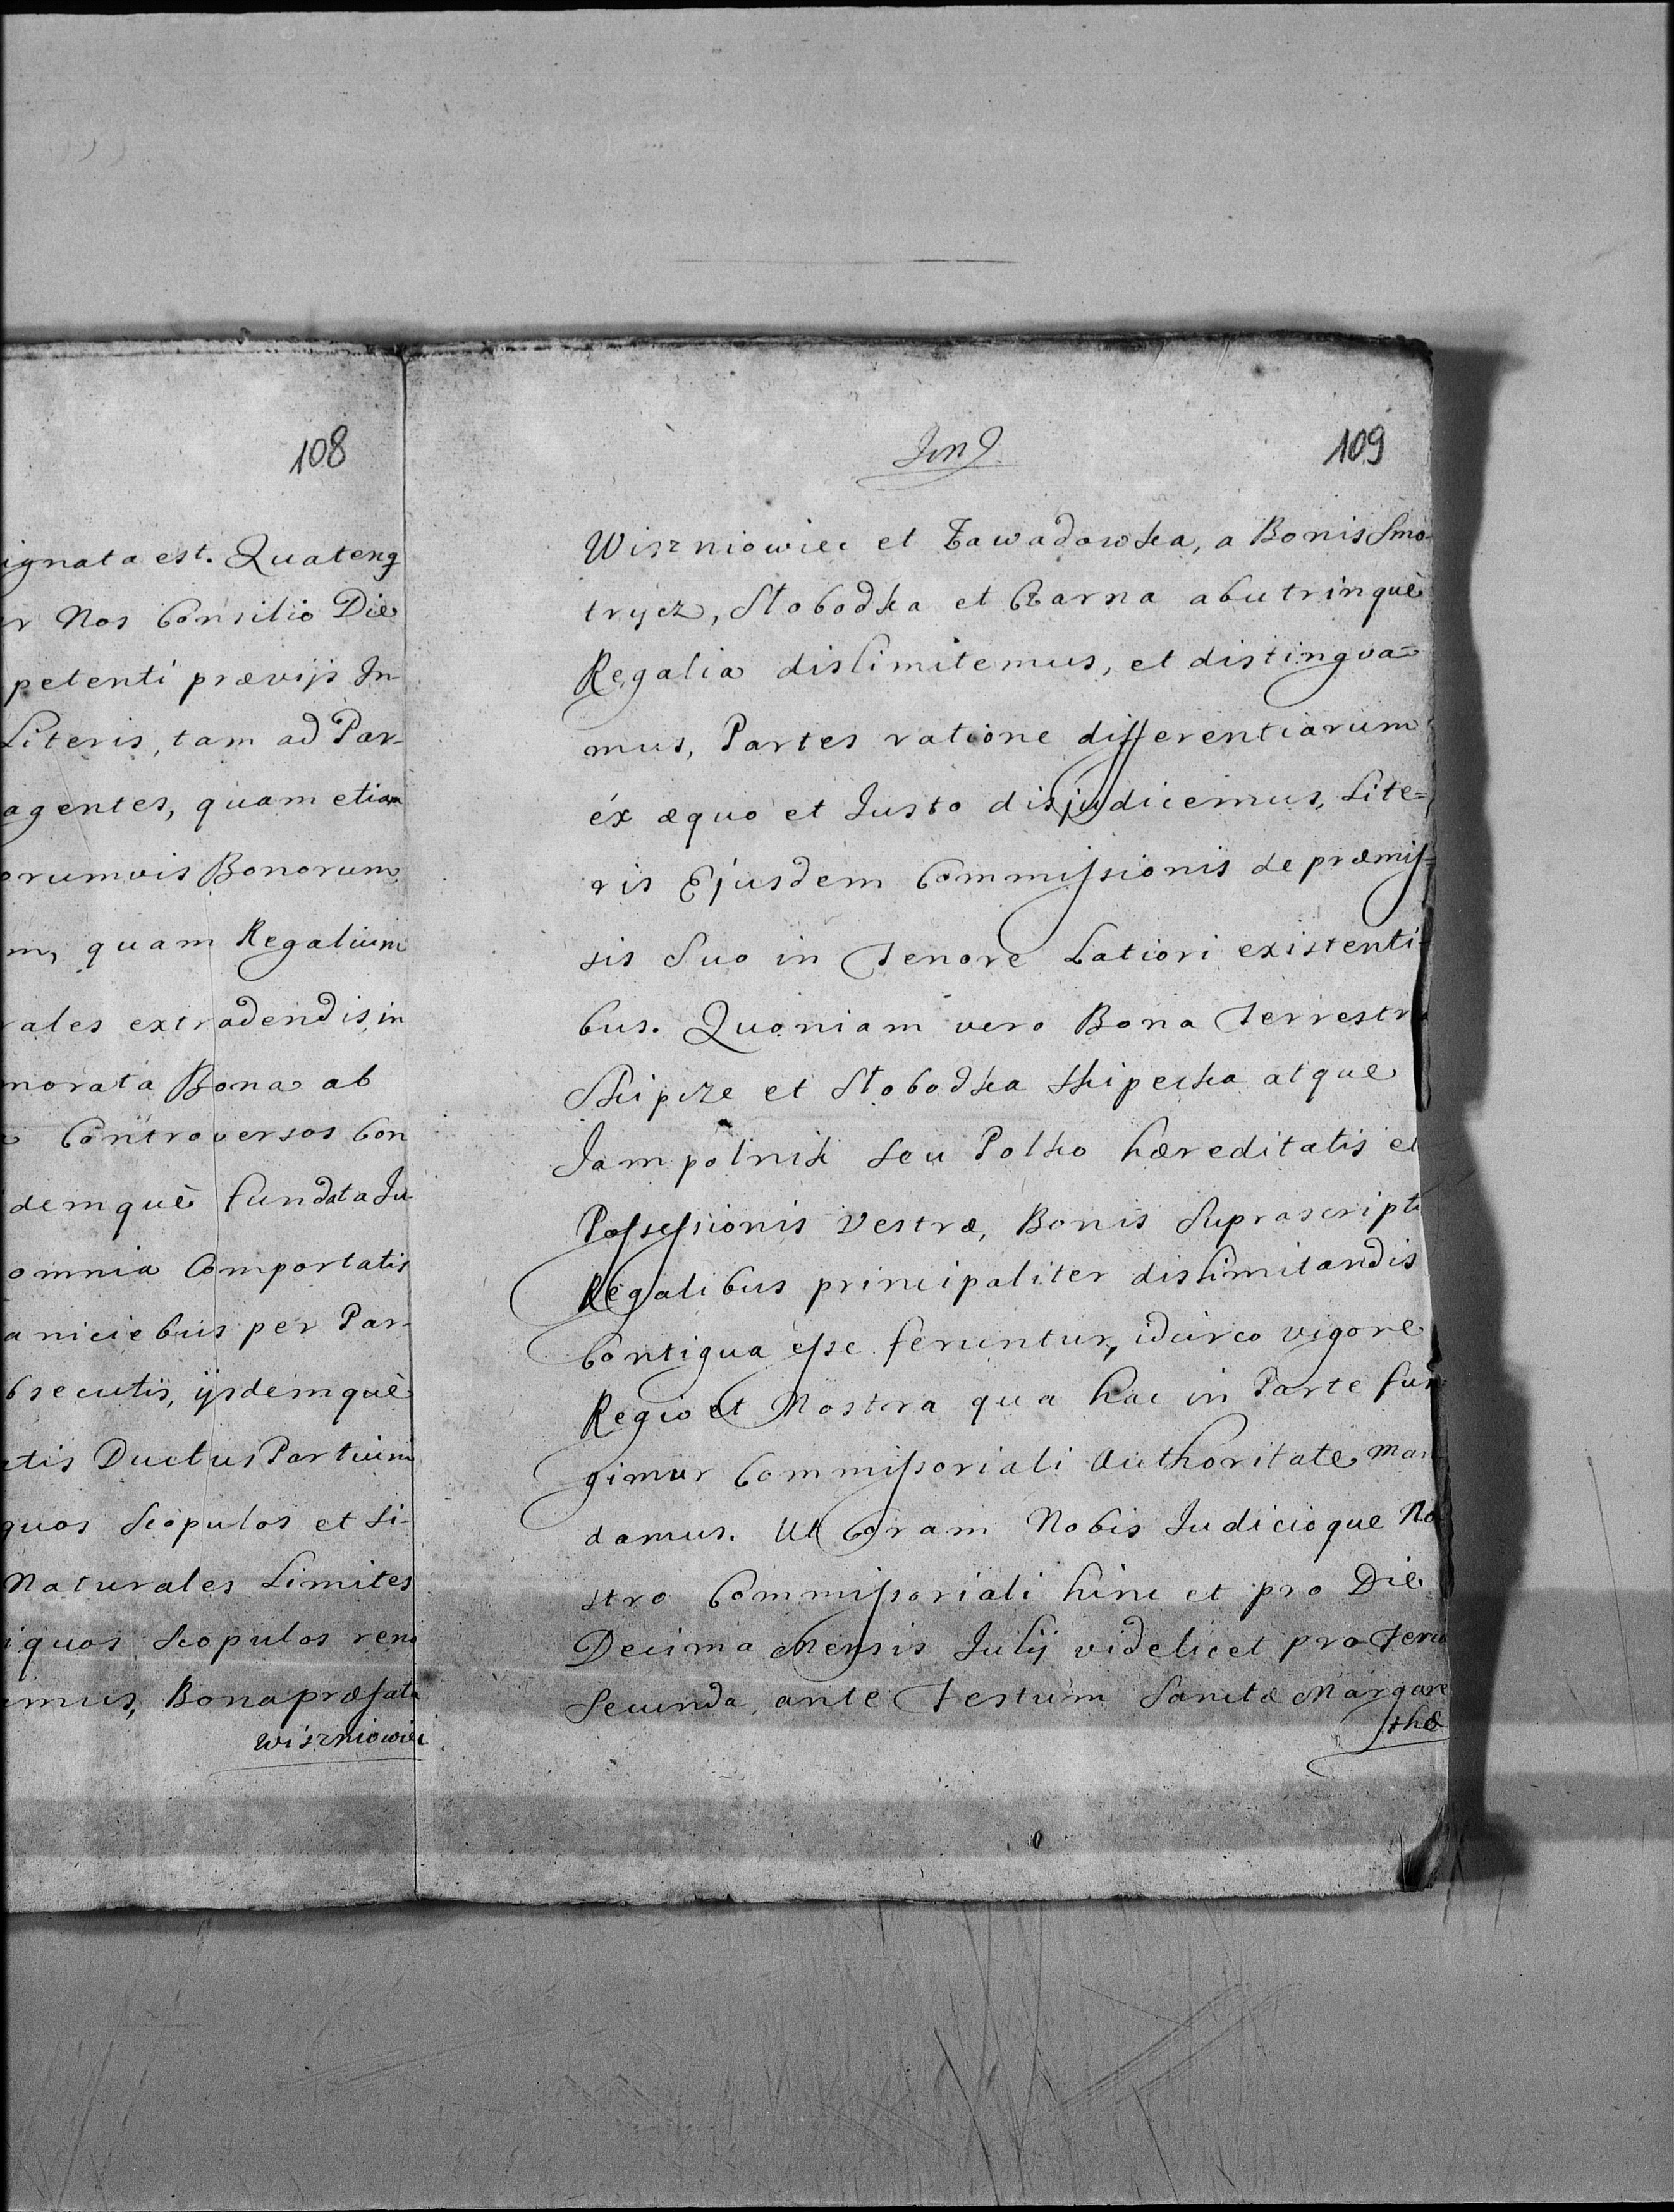 108
ignata est. Quateng
r Nos Consilio Die
petenti prævijs In-
Literis, tam ad Par-
agentes, quam etiam
orumvis Bonorum
m, quam Regalium
rales extradendis, in
morata Bona ab
Controversos Con
demquè fundata Ju-
omnia Comportatis
aniciebus per Par-
bsecutis, ijsdemquè
etis Ductus Partium
quos Scopulos et Li-
Naturales Limites
iquos Scopulos reno
emus, Bona præfata
Wiszniowiec
109
Wiszniowiec et Zawadowka, a Bonis Smo-
trycz, Słobodka et Czarna abutrinquè
Regalia dislimitemus, et distingva=
mus, Partes ratione differentiarum
éx æquo et Justo disjudicemus, Lite=
ris Ejusdem Commissionis de præmis=
sis Suo in Tenore Latiori existenti-
bus. Quoniam vero Bona Terrestr
Skipcze et Słobodka Skipecka atque
Jampolnik seu Polko hæreditatis et
Possessionis Vestræ, Bonis Suprascripti
Regalibus principaliter dislimitandis
Contigua esse feruntur, idcirco vigore
Regio et Nostra qua hac in Parte fun
gimur Commissoriali Authoritate Man
damus. Ut Coram Nobis Judicioque No
stro Commissoriali hinc et pro Die
Decima Mensis Julij videlicet pro Feria
Secunda ante Festum Sanctæ Margare
thæ